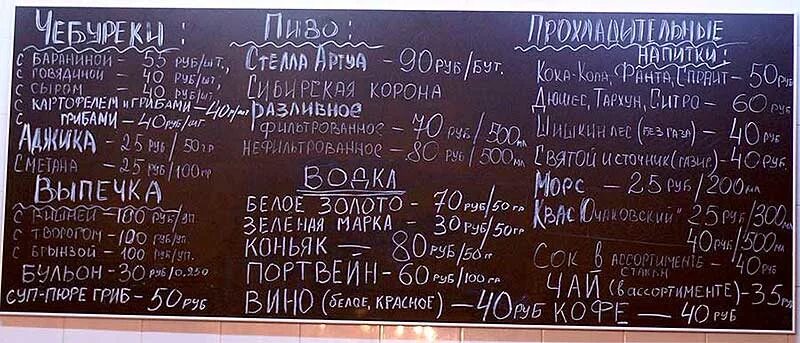 Чебуреки:
с бараниной - 55 руб/шт.,
с говядиной - 40 руб/шт.,
с сыром - 40 руб/шт
с картофелем и грибами - 40 р/шт
с грибами - 40 руб/шт
Аджика - 25 руб/50 гр
Сметана - 25 руб/100 гр
Выпечка
с вишней - 100 руб/уп.
с творогом - 100 руб/уп.
с брынзой - 100 руб/уп.
Бульон - 30 руб/0,250
Суп-пюре гриб - 50 руб
Пиво:
Стелла Артуа - 90 руб/бут.
Сибирская корона
разливное
фильтрованное - 70 руб/500 мл
нефильтрованное - 80 руб/500 мл
Водка
Белое золото - 70 руб/50 гр
Зеленая марка - 30 руб/50 гр
Коньяк - 80 руб/50 гр
Портвейн - 60 руб/100 гр
Вино (белое, красное) - 40 руб
Прохладительные
напитки:
Кока-Кола, Фанта, Спрайт - 50 руб
Дюшес, Тархун, Ситро - 60 руб
Шишкин лес (без газа) - 40 руб
Святой источник (газир.) - 40 руб.
Морс - 25 руб/200 мл
Квас "Очаковский" 25 руб/300 мл
40 руб/500 мл
Сок в ассортименте - 40 руб
стакан
Чай (в ассортименте) - 35 руб
Кофе - 40 руб